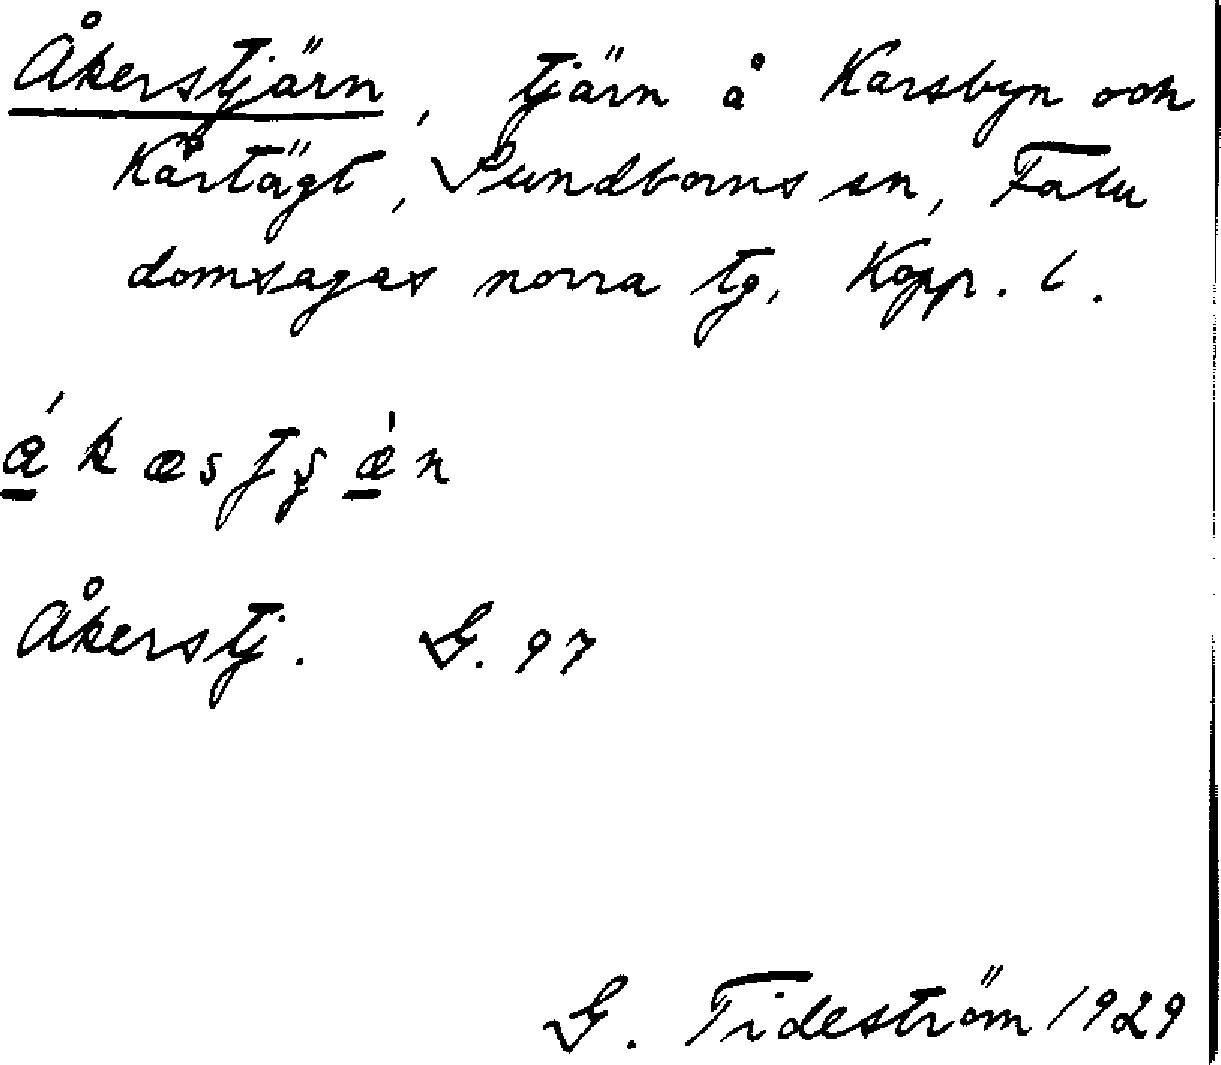 Åkerstjärn, tjärn å Karsbyn och
Kårtägt, Sundborns sn, Falu
domsagas norra tg, Kopp. l.
Åkerstj. G. 97
G. Tideström 1929